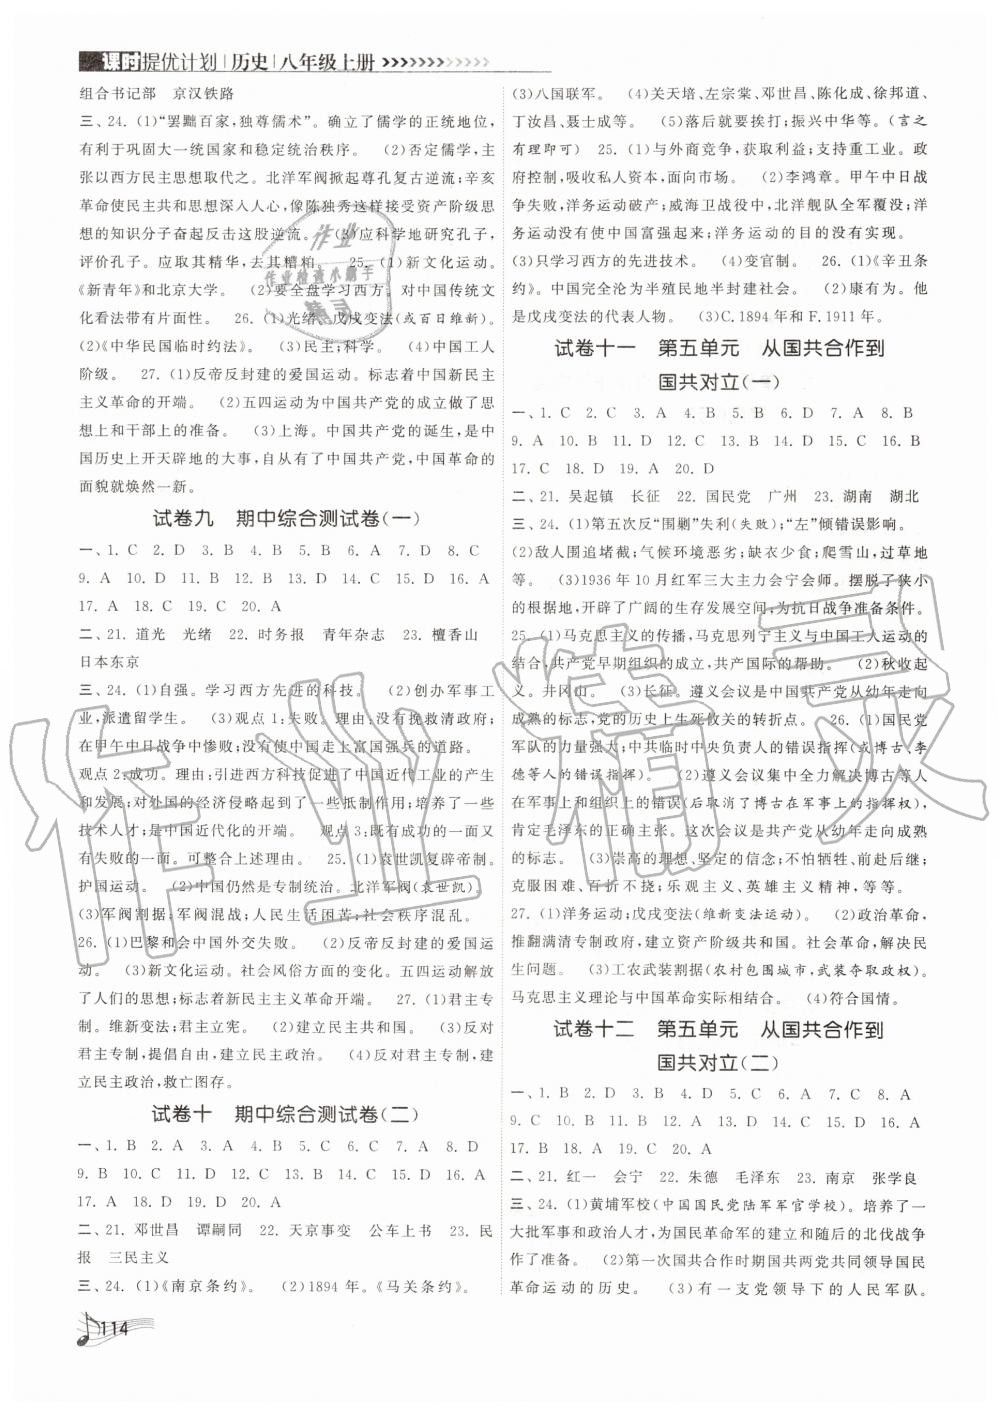 课时提优计划 | 历史 | 八年级上册
组合书记部　京汉铁路
三、24. (1)“罢黜百家,独尊儒术”。确立了儒学的正统地位,
有利于巩固大一统国家和稳定统治秩序。　(2)否定儒学,主
张以西方民主思想取代之。北洋军阀掀起尊孔复古逆流;辛亥
革命使民主共和思想深入人心,像陈独秀这样接受资产阶级思想
的知识分子奋起反击这股逆流。　(3)应科学地研究孔子,
评价孔子。应取其精华,去其糟粕。　25. (1)新文化运动。
《新青年》和北京大学。　(2)要全盘学习西方。对中国传统文
化看法带有片面性。　26. (1)光绪。戊戌变法(或百日维新)。
(2)《中华民国临时约法》。　(3)民主;科学。　(4)中国工人
阶级。　27. (1)反帝反封建的爱国运动。标志着中国新民主
主义革命的开端。　(2)五四运动为中国共产党的成立做了思
想上和干部上的准备。　(3)上海。中国共产党的诞生,是中
国历史上开天辟地的大事,自从有了中国共产党,中国革命的
面貌就焕然一新。
试卷九　期中综合测试卷(一)
一、1. C　2. D　3. B　4. C　5. B　6. A　7. D　8. C
9. A　10. D　11. C　12. D　13. D　14. C　15. D　16. A
17. A　18. C　19. C　20. A
二、21. 道光　光绪　22. 时务报　青年杂志　23. 檀香山
日本东京
三、24. (1)自强。学习西方先进的科技。　(2)创办军事工
业,派遣留学生。　(3)观点1:失败。理由:没有挽救清政府;
在甲午中日战争中惨败;没有使中国走上富国强兵的道路。
观点2:成功。理由:引进西方科技促进了中国近代工业的产生
和发展;对外国的经济侵略起到了一些抵制作用;培养了一些
技术人才;是中国近代化的开端。　观点3:既有成功的一面又
有失败的一面。可整合上述理由。　25. (1)袁世凯复辟帝制。
护国运动。　(2)中国仍然是专制统治。北洋军阀(袁世凯)。
(3)军阀割据;军阀混战;人民生活困苦;社会秩序混乱。
26. (1)巴黎和会中国外交失败。　(2)反帝反封建的爱国运
动。　(3)新文化运动。社会风俗方面的变化。五四运动解放
了人们的思想;标志着新民主主义革命开端。　27. (1)君主专
制。维新变法;君主立宪。　(2)建立民主共和国。　(3)反对
君主专制,提倡自由,建立民主政治。　(4)反对君主专制,建
立民主政治,救亡图存。
试卷十　期中综合测试卷(二)
一、1. B　2. A　3. A　4. A　5. B　6. C　7. A　8. D
9. B　10. C　11. D　12. D　13. B　14. C　15. D　16. A
17. A　18. A　19. D　20. A
二、21. 邓世昌　谭嗣同　22. 天京事变　公车上书　23. 民
报　三民主义
三、24. (1)《南京条约》。　(2)1894年。《马关条约》。
(3)八国联军。　(4)关天培、左宗棠、邓世昌、陈化成、徐邦道、
丁汝昌、聂士成等。　(5)落后就要挨打;振兴中华等。(言之
有理即可)　25. (1)与外商竞争,获取利益;支持重工业。政
府控制,吸收私人资本、面向市场。　(2)李鸿章。甲午中日战
争失败,洋务运动破产;威海卫战役中,北洋舰队全军覆没;洋
务运动没有使中国富强起来;洋务运动的目的没有实现。
(3)只学习西方的先进技术。　(4)变官制。　26. (1)《辛丑条
约》。中国完全沦为半殖民地半封建社会。　(2)康有为。他
是戊戌变法的代表人物。　(3)C. 1894年和F. 1911年。
试卷十一　第五单元　从国共合作到
国共对立(一)
一、1. C　2. C　3. A　4. B　5. B　6. D　7. A　8. B
9. A　10. B　11. D　12. C　13. B　14. C　15. C　16. B
17. C　18. D　19. A　20. D
二、21. 吴起镇　长征　22. 国民党　广州　23. 湖南　湖北
三、24. (1)第五次反“围剿”失利(失败);“左”倾错误影响。
(2)敌人围追堵截;气候环境恶劣;缺衣少食;爬雪山,过草地
等。　(3)1936年10月红军三大主力会宁会师。摆脱了狭小
的根据地,开辟了广阔的生存发展空间,为抗日战争准备条件。
25. (1)马克思主义的传播,马克思列宁主义与中国工人运动的
结合,共产党早期组织的成立,共产国际的帮助。　(2)秋收起
义。井冈山。　(3)长征。遵义会议是中国共产党从幼年走向
成熟的标志,党的历史上生死攸关的转折点。　26. (1)国民党
军队的力量强大;中共临时中央负责人的错误指挥(或博古、李
德等人的错误指挥)。　(2)遵义会议集中全力解决博古等人
在军事上和组织上的错误(后取消了博古在军事上的指挥权),
肯定毛泽东的正确主张。这次会议是共产党从幼年走向成熟
的标志。　(3)崇高的理想、坚定的信念;不怕牺牲、前赴后继;
克服困难、百折不挠;乐观主义、英雄主义精神,等等。
27. (1)洋务运动;戊戌变法(维新变法运动)。　(2)政治革命,
推翻满清专制政府,建立资产阶级共和国。社会革命,解决民
生问题。　(3)工农武装割据(农村包围城市,武装夺取政权)。
马克思主义理论与中国革命实际相结合。　(4)符合国情。
试卷十二　第五单元　从国共合作到
国共对立(二)
一、1. B　2. D　3. B　4. D　5. C　6. A　7. C　8. A
9. C　10. B　11. A　12. C　13. D　14. B　15. C　16. A
17. B　18. A　19. C　20. A
二、21. 红一　会宁　22. 朱德　毛泽东　23. 南京　张学良
三、24. (1)黄埔军校(中国国民党陆军军官学校)。培养了一
大批军事和政治人才,为国民革命军的建立和随后的北伐战争
作了准备。　(2)第一次国共合作时期国共两党共同领导国民
革命运动的历史。　(3)有一支党领导下的人民军队。
114
作业
作业检查小帮手
精灵
作业精灵